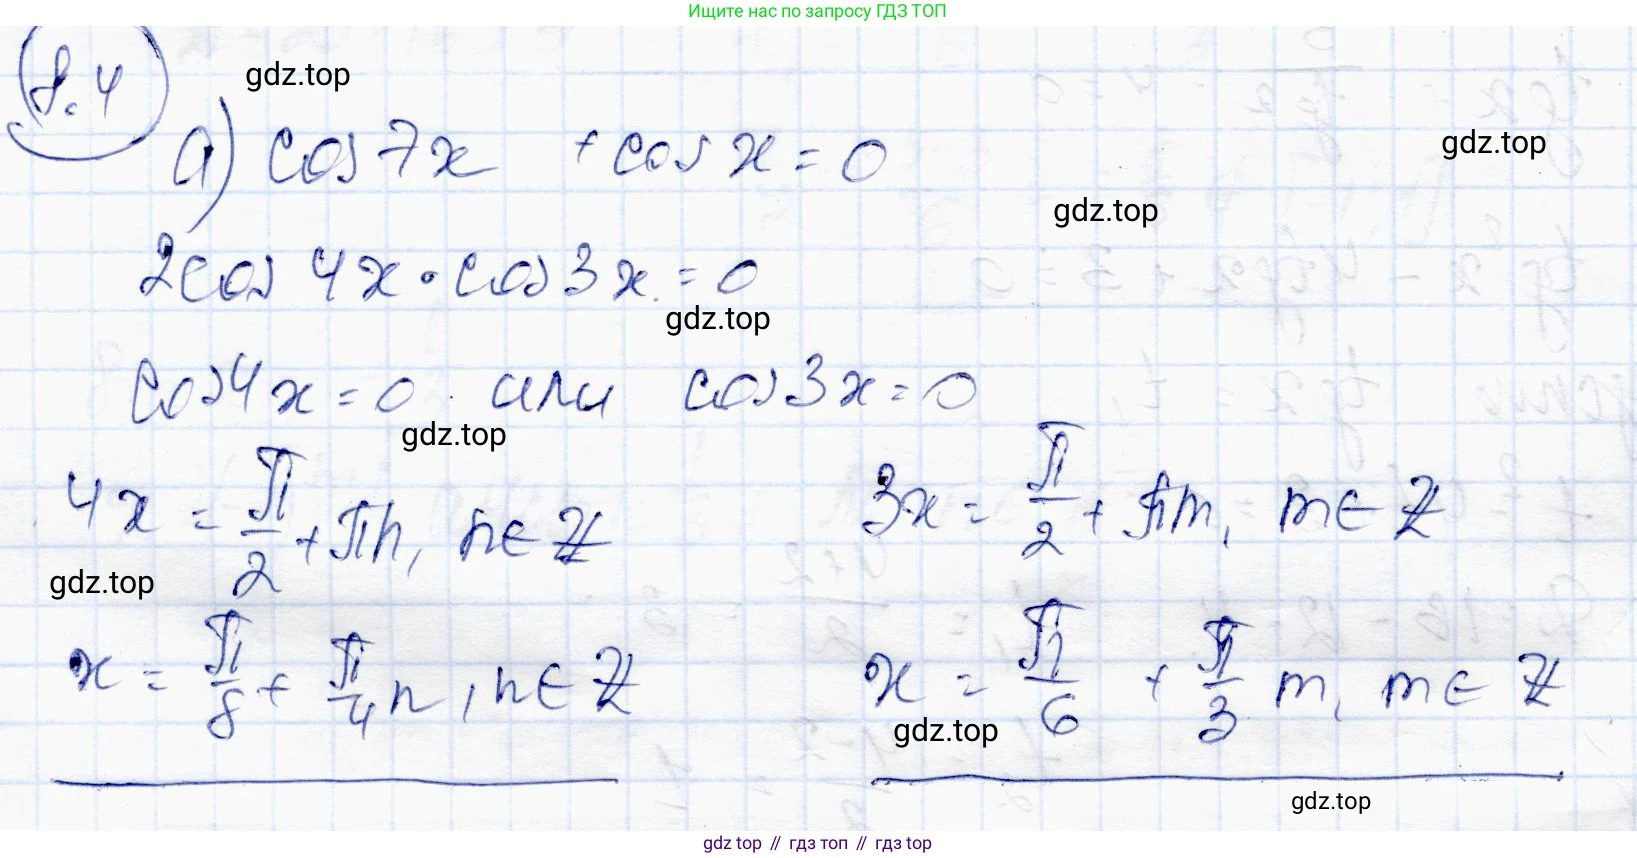 Ищите нас по запросу ГДЗ ТОП
8.4
gdz.top
а) cos 7x + cos x = 0
gdz.top
gdz.top
2cos 4x · cos 3x = 0
gdz.top
cos 4x = 0 или cos 3x = 0
gdz.top
4x = π/2 + πn, n ∈ Z 3x = π/2 + πm, m ∈ Z
gdz.top
x = π/8 + π/4 n, n ∈ Z x = π/6 + π/3 m, m ∈ Z
gdz.top
gdz.top
gdz top // гдз топ // gdz top